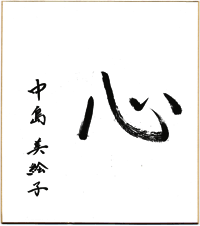 心
中島美絵子